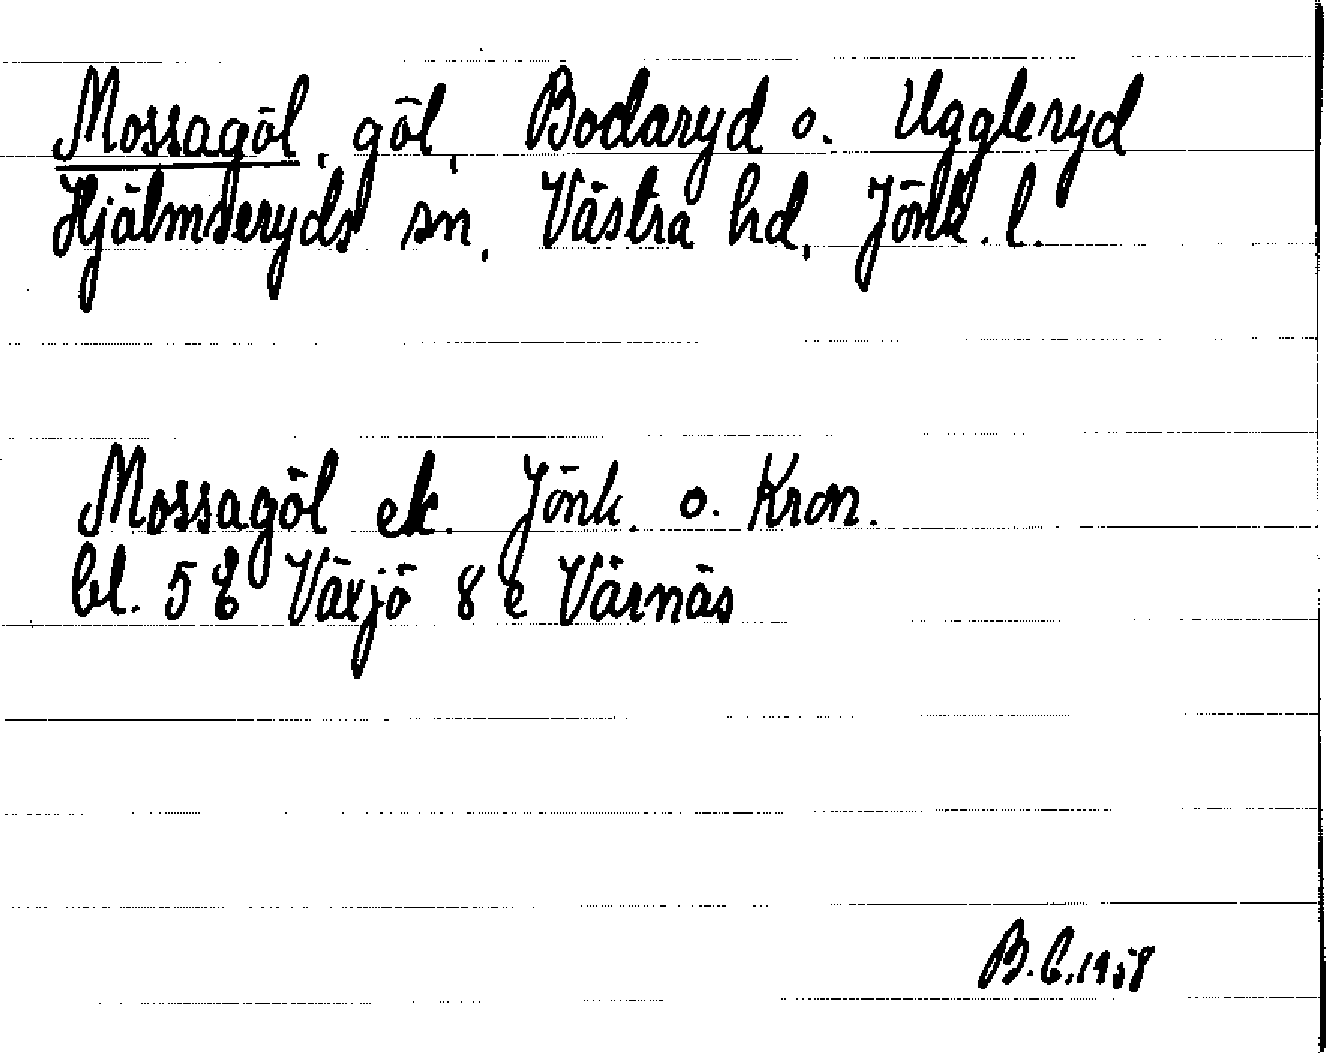 Mossagöl, göl, Bodaryd o. Uggleryd
Hjälmseryds sn, Västra hd, Jönk. l.
Mossagöl ek. Jönk. o. Kron.
bl. 5 E Växjö 8 e Värnäs
B.C. 1958